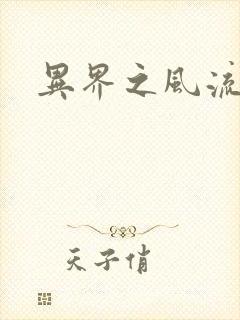 異界之風流
天子俏